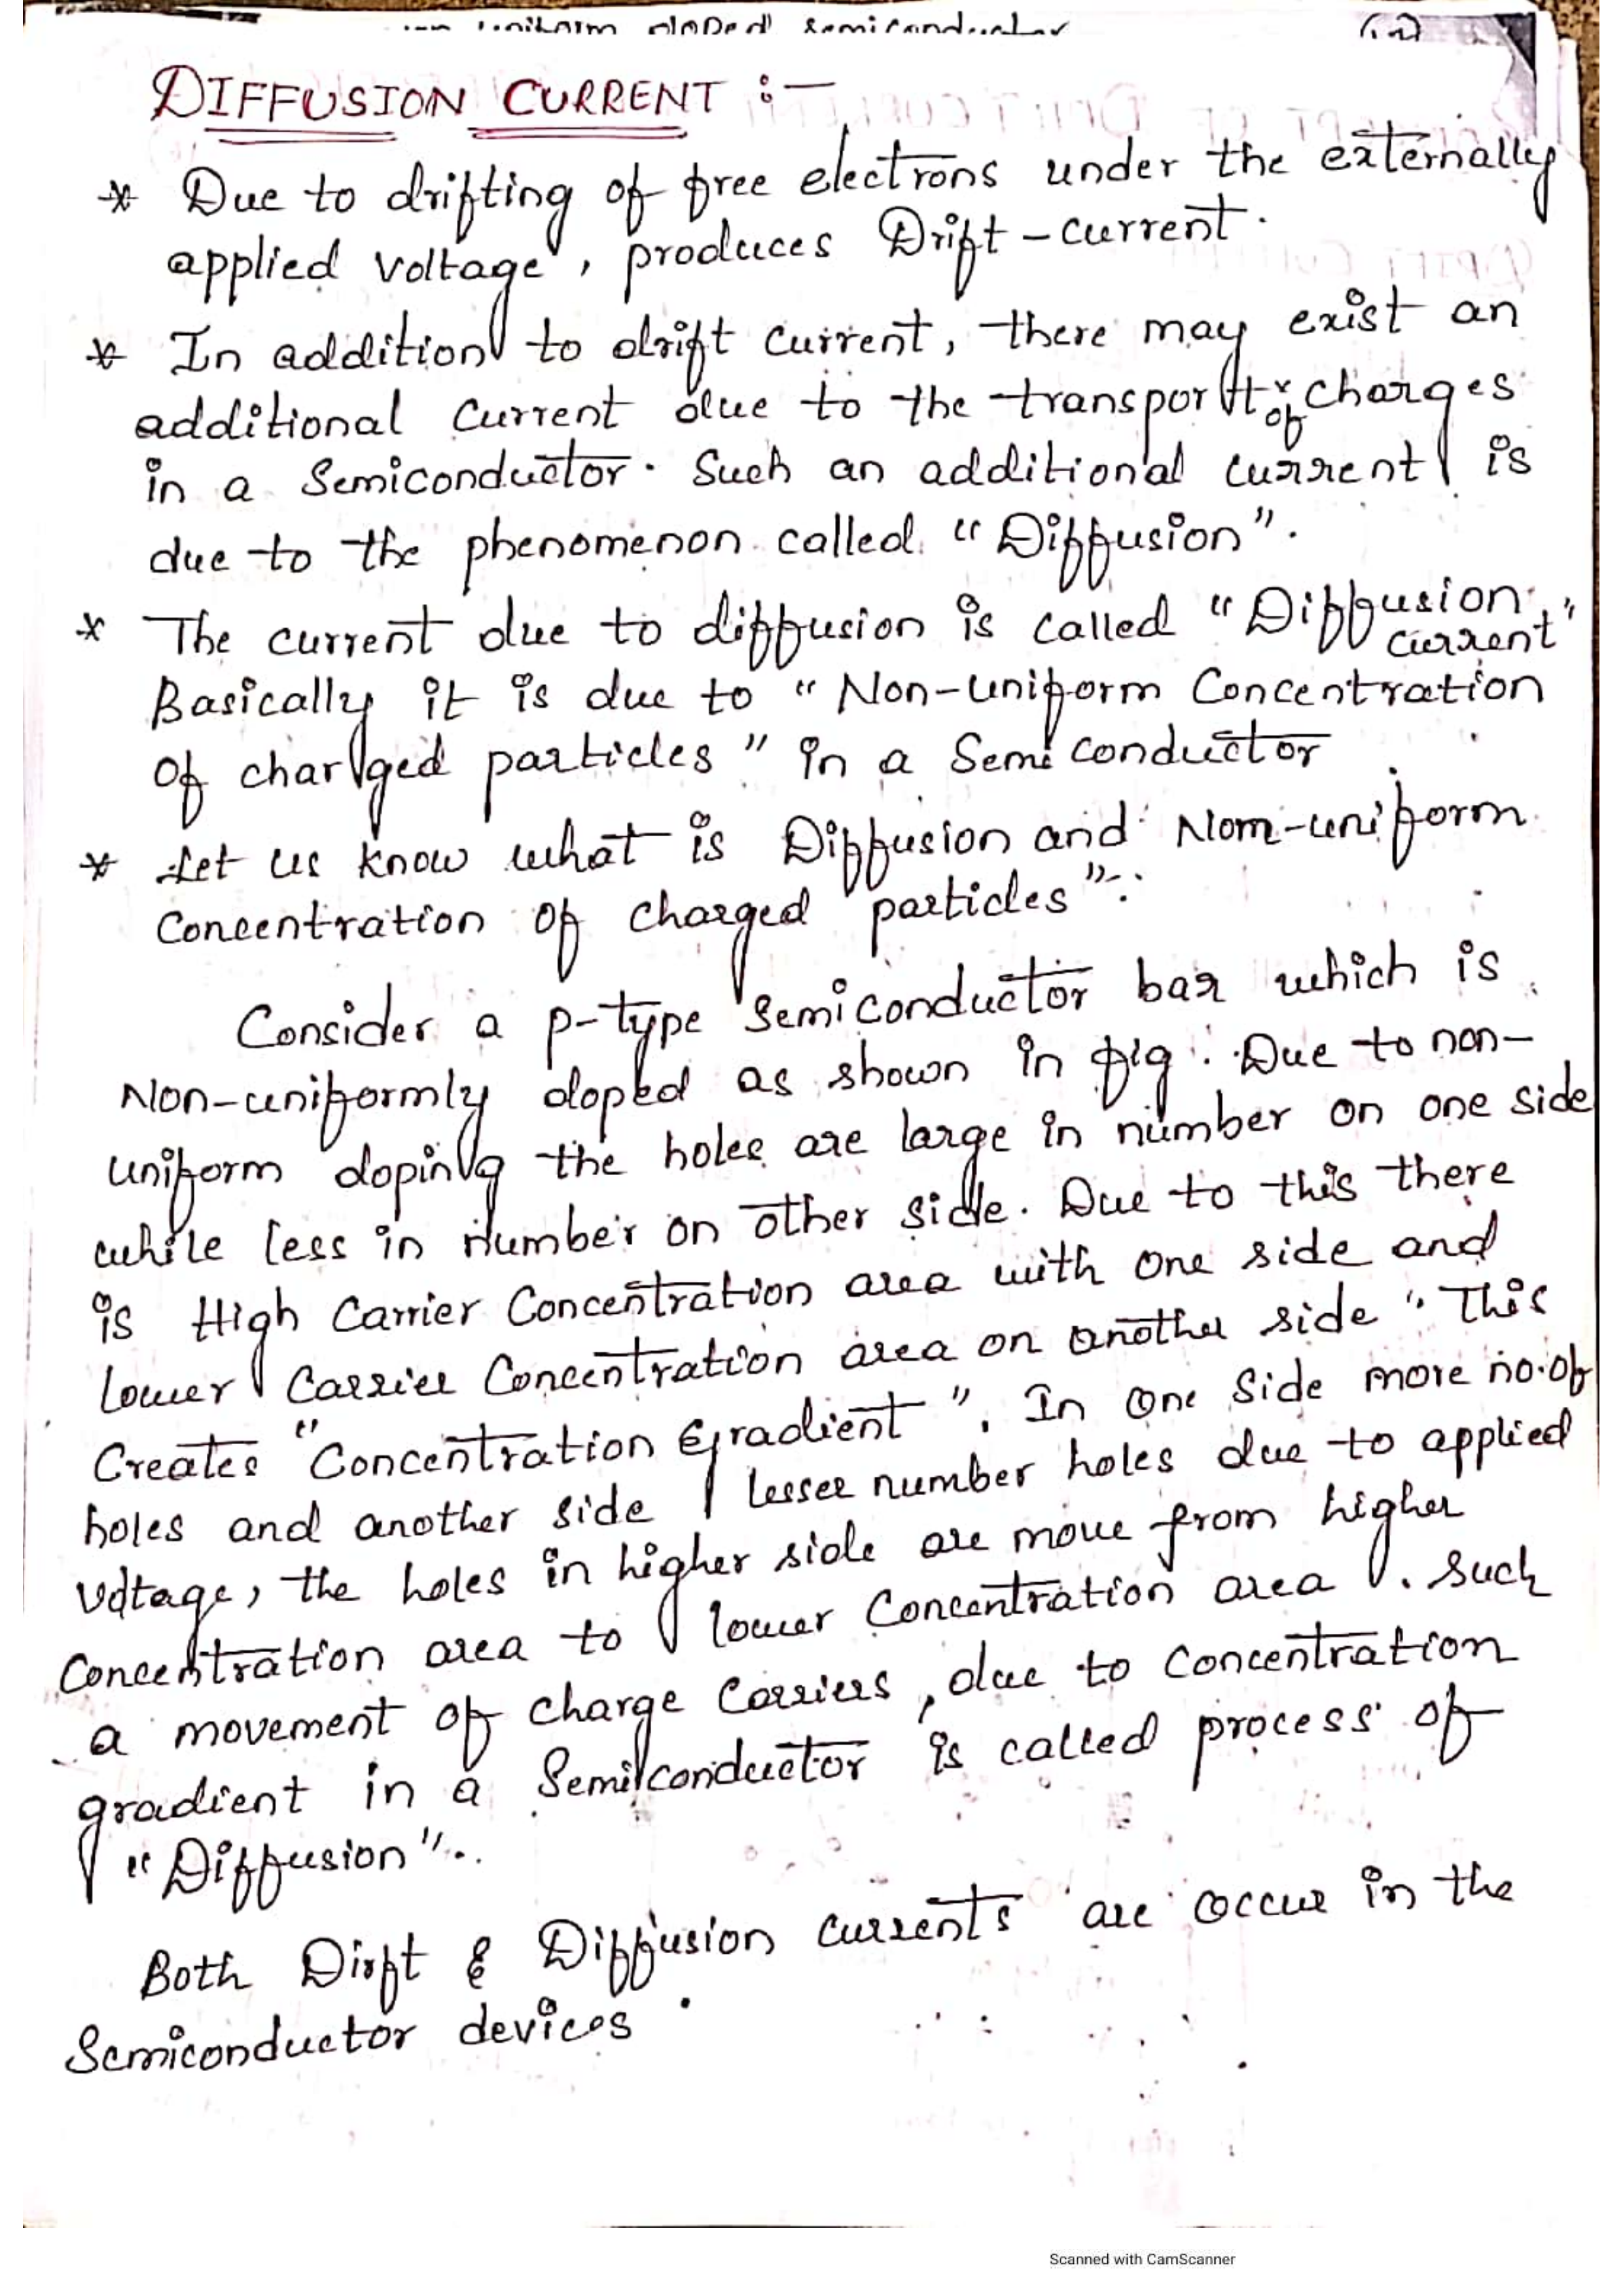 uniform doped semiconductor
DIFFUSION CURRENT :-
* Due to drifting of free electrons under the externally
applied voltage, produces Drift-current.
* In addition to drift current, there may exist an
additional current due to the transport of charges
in a semiconductor. Such an additional current is
due to the phenomenon called "Diffusion".
* The current due to diffusion is called "Diffusion current"
Basically it is due to "Non-uniform Concentration
Of charged particles" in a Semiconductor
* Let us know what is Diffusion and Nom-uniform
Concentration Of charged particles".
Consider a p-type semiconductor bar which is
Non-uniformly doped as shown in fig. Due to non-
uniform doping the holes are large in number on one side
while less in number on other side. Due to this there
is High Carrier Concentration area with one side and
lower Carrier Concentration area on another side". This
Creates "Concentration Gradient". In One Side more no.of
holes and another side lesser number holes due to applied
voltage, the holes in higher side are move from higher
Concentration area to lower Concentration area. Such
a movement of charge Carriers, due to Concentration
gradient in a Semiconductor is called process of
"Diffusion".
Both Dirft & Diffusion currents are occur in the
Semiconductor devices.
Scanned with CamScanner